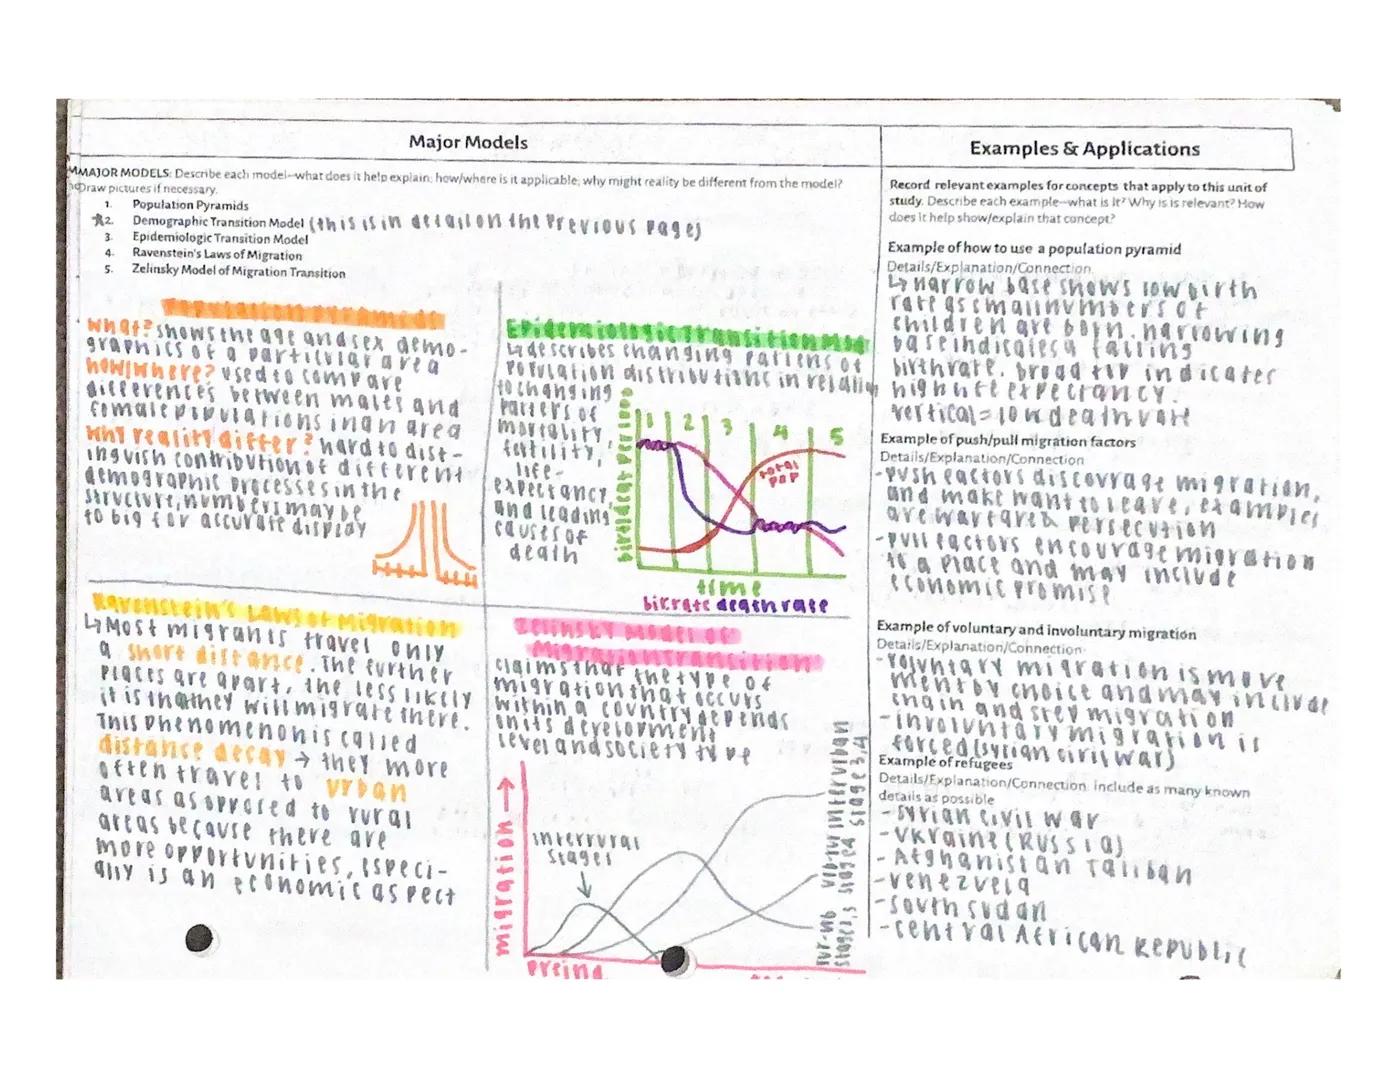 Major Models
MMAJOR MODELS: Describe each model—what does it help explain; how/where is it applicable; why might reality be different from the model?
Draw pictures if necessary.
1. Population Pyramids
★2. Demographic Transition Model (this is in detail on the previous page)
3. Epidemiologic Transition Model
4. Ravenstein's Laws of Migration
5. Zelinsky Model of Migration Transition
Population Pyramids
what? shows the age and sex demo-
graphics of a particular area
how/where? used to compare
differences between males and
female populations in an area
why reality differ? hard to dist-
inguish contribution of different
demographic processes in the
structure, numbers may be
to big for accurate display
Epidemiologic Transition Mod
↳ describes changing patterns of
population distributions in relation
to changing
patters of
mortality,
fertility,
life-
expectancy,
and leading
causes of
death
1 2 3 4 5
total
pop
time
birrate death rate
Ravenstein's Laws of Migration
↳ Most migrants travel only
a short distance. The further
places are apart, the less likely
it is that they will migrate there.
This phenomenon is called
distance decay → they more
often travel to urban
areas as opposed to rural
areas because there are
more opportunities, especi-
ally is an economic aspect
Zelinsky Model of
Migration Transition
claims that the type of
migration that occurs
within a country depends
on its development
level and society type
migration →
interrural
stages
Preind.
rur-urb
stage 2,3
urb-rur
stage 4
interurban
stage 3,4
Examples & Applications
Record relevant examples for concepts that apply to this unit of
study. Describe each example—what is it? Why is is relevant? How
does it help show/explain that concept?
Example of how to use a population pyramid
Details/Explanation/Connection
↳ narrow base shows low birth
rate as small numbers of
children are born. narrowing
base indicates a falling
birthrate. broad tip indicates
high life expectancy.
vertical = low death rate
Example of push/pull migration factors
Details/Explanation/Connection
-push factors discourage migration,
and make want to leave, examples
are warfare & persecution
-pull factors encourage migration
to a place and may include
economic promise
Example of voluntary and involuntary migration
Details/Explanation/Connection
-voluntary migration is move
ment by choice and may include
chain and step migration
-involuntary migration is
forced (syrian civil war)
Example of refugees
Details/Explanation/Connection: include as many known
details as possible
-syrian civil war
-Ukraine (Russia)
-Afghanistan Taliban
-venezuela
-south sudan
-central African Republic